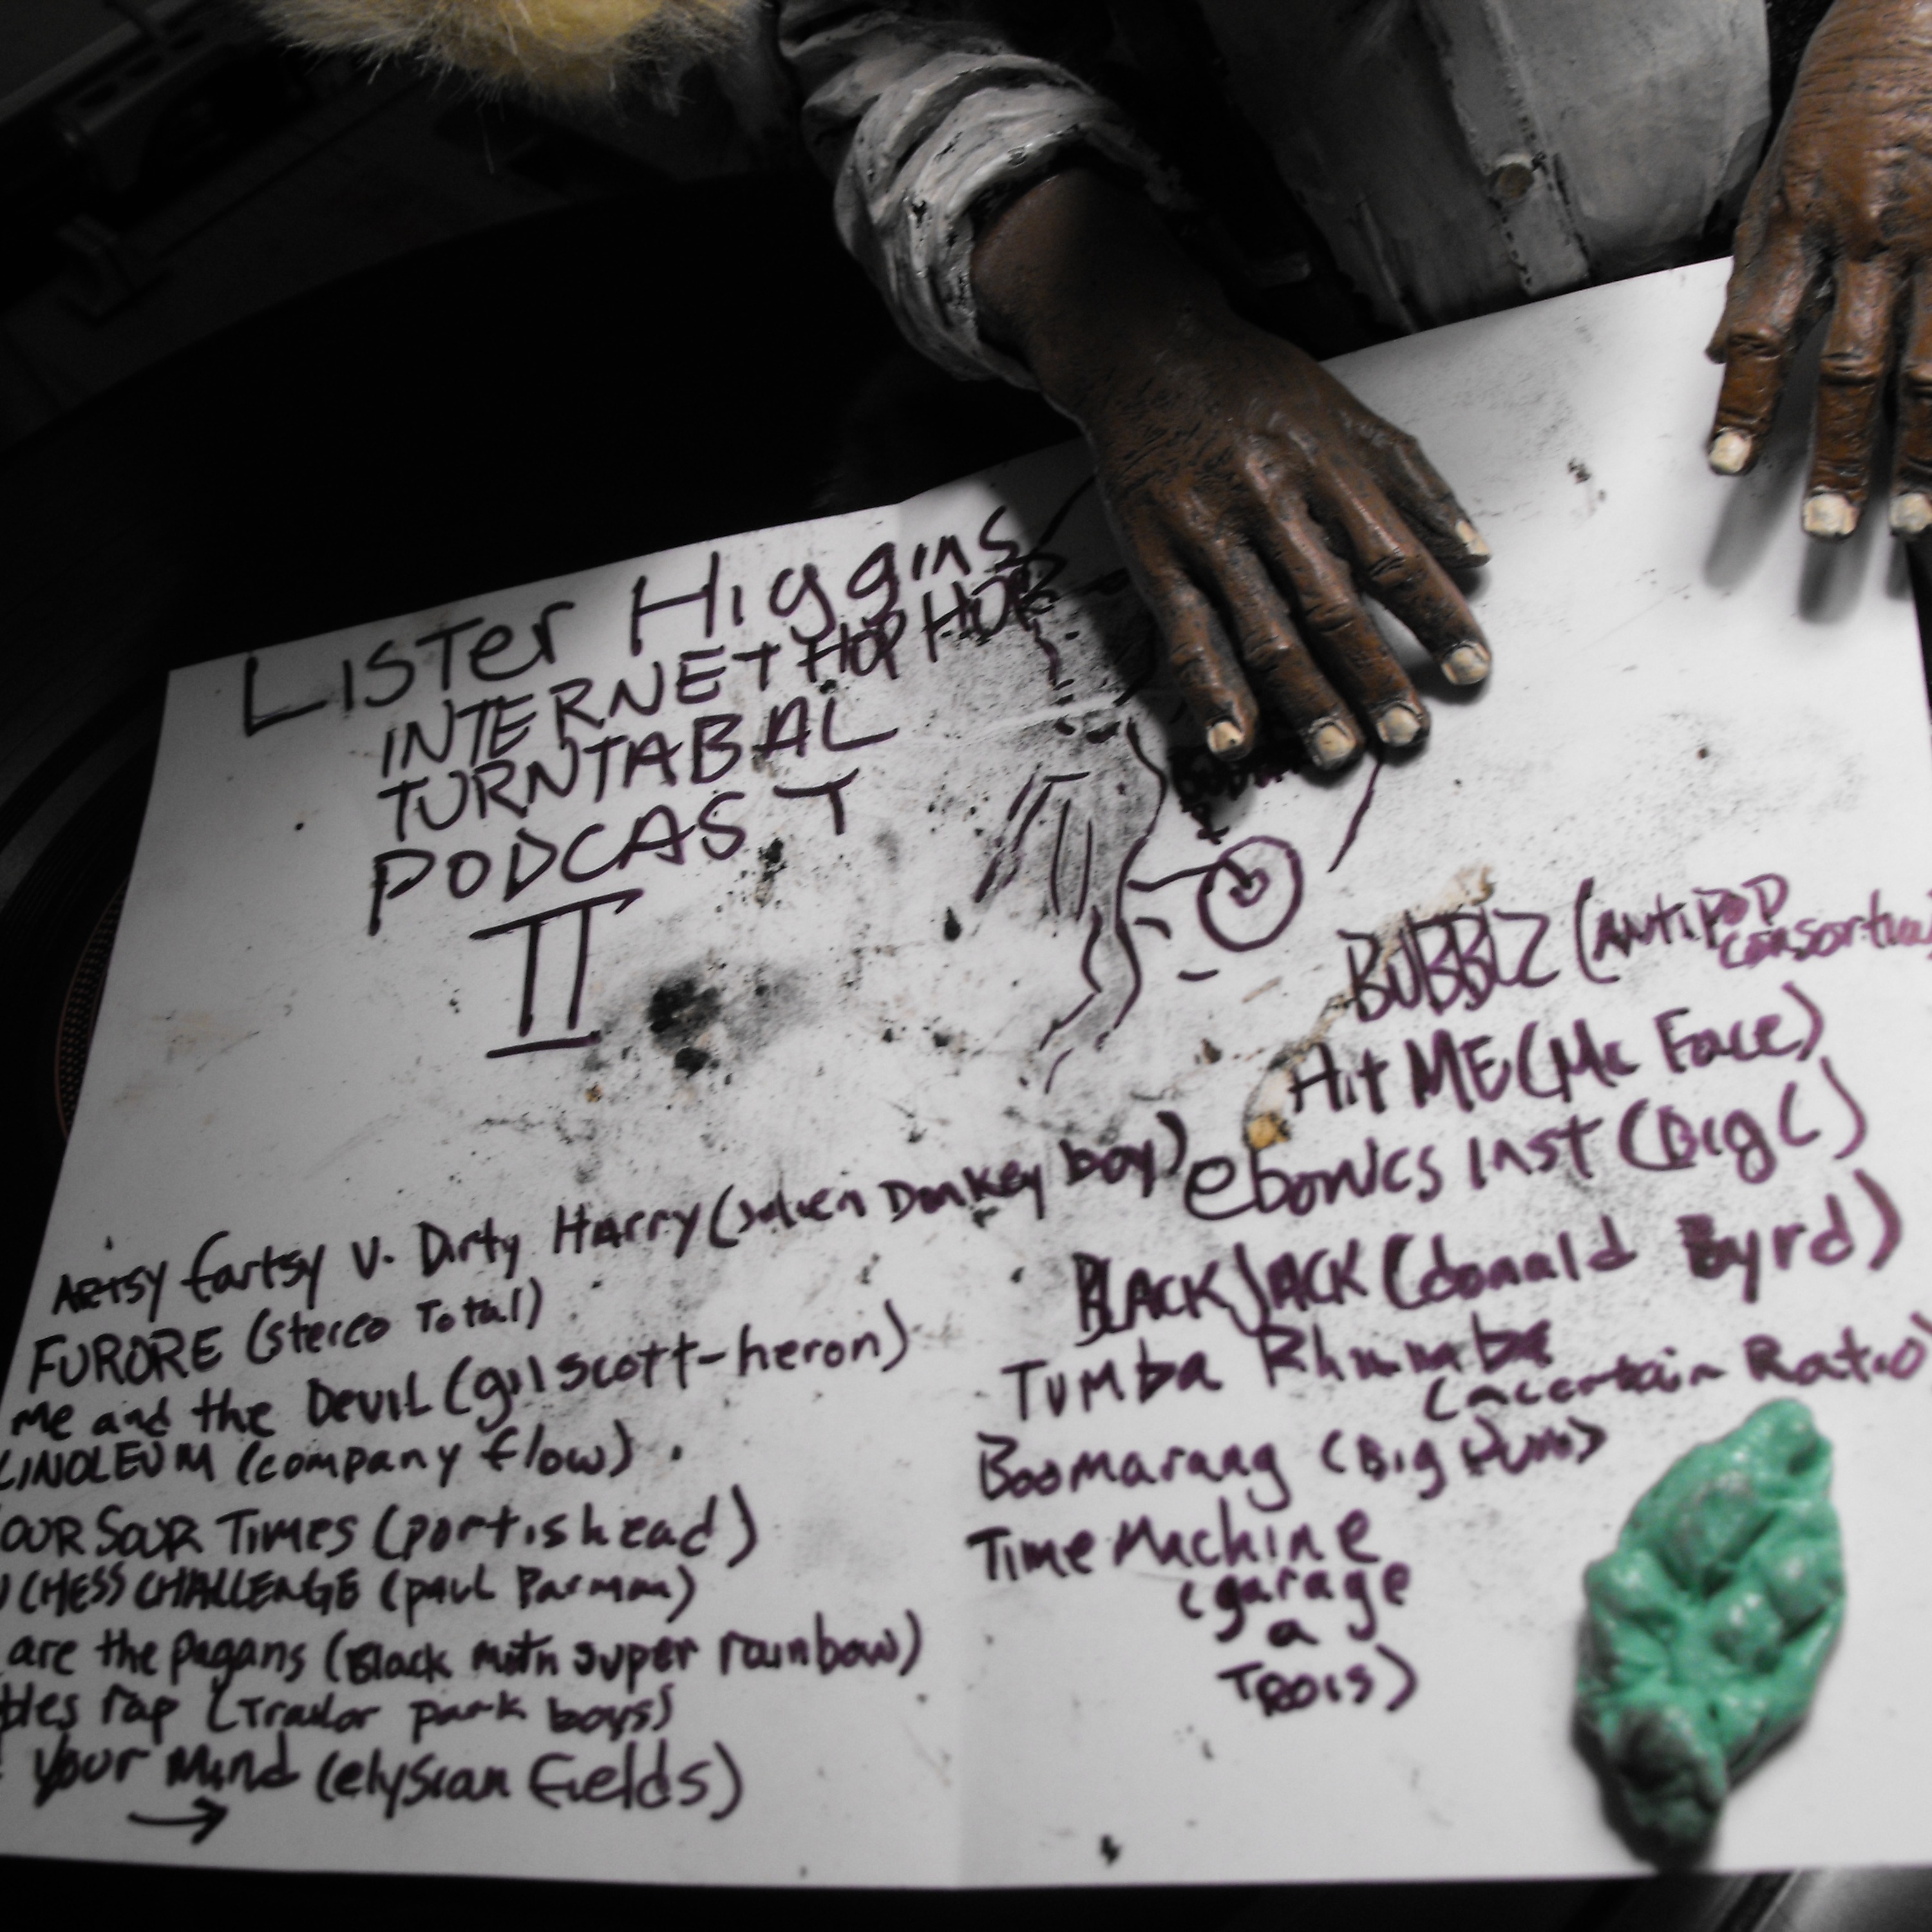 Lister Higgins
INTERNET HOP HOP
TURNTABAL
PODCAST
II
ARTSY fartsy v. Dirty Harry (Julien Donkey boy)
FURORE (stereo Total)
Me and the Devil (gil scott-heron)
LINOLEUM (company flow)
OUR SOUR TIMES (portishead)
CHESS CHALLENGE (paul Barman)
are the pagans (Black moth super rainbow)
bles rap (Trailor park boys)
Your Mind (elysian fields)
→
BUBBLZ (ANtiPOP
consortium
Hit ME (Mc Face)
ebonics inst (Big L)
BLACKJACK (donald Byrd)
Tumba Rhumba
(acertain Ratio)
Boomarang (Big Pun)
Time Machine
(garage
a
TROIS)